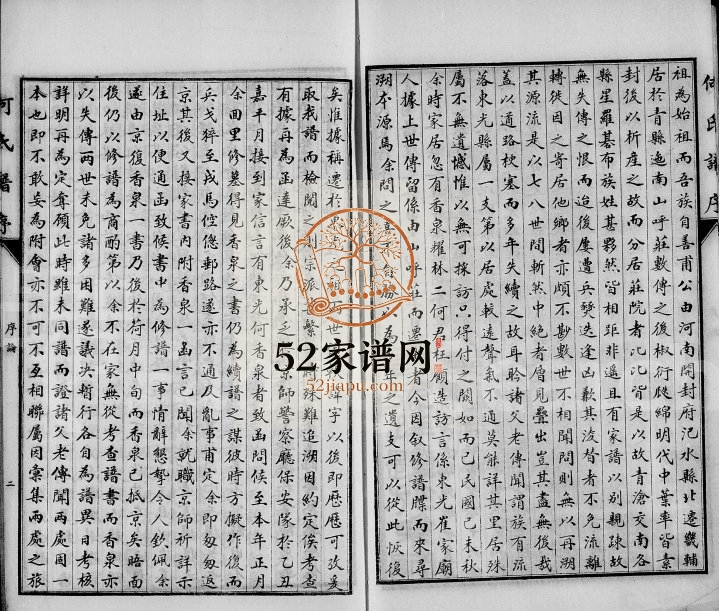 何氏譜序
祖為始祖而吾族自善甫公由河南開封府汜水縣北遷畿輔
居於青縣迤南山呼莊數傳之後椒衍瓞綿明代中葉率皆素
封後以析產之故而分居莊院者比比皆是以故青滄交南各
縣星羅棊布族姓甚夥然皆相距非遙且有家譜以別親疎故
無失傳之恨而迨後屢遭兵燹迭逢凶歉其淩替者不免流離
轉徙因之寄居他鄉者亦頗不尠數世不相聞問則無以再溯
其源流是以七八世間斬然中絕者層見疊出豈其盡無後哉
蓋以道路梗塞而多年失續之故耳聆諸久老傳聞謂族有流
落東光縣屬一支第以居處較遠聲氣不通莫能詳其里居殊
屬不無遺憾惟以無可採訪只得付之闕如而已民國己未秋
余時家居忽有香泉耀林二何君枉顧造訪言係東光崔家廟
人據上世傳留係由山呼莊而遷者今因叙修譜牒而來尋
溯本源焉余聞之年之遺支可以從此恢復
矣惟據稱遷於世諱字以後即歷歷可攷矣
取我譜而檢閱之宗派繁難追溯因約定俟考查
有據再為函達厥後余乃承之京師警察廳保安隊於乙丑
嘉平月接到家信言有東光何香泉者致函問候至本年正月
余回里修墓得見香泉之書仍為續譜之謀彼時方擬作復而
兵戈猝至戎馬倥傯郵路遂不通及亂事甫定余即匆匆返
京其後又接家書內附香泉一函言已聞余就職京師祈詳示
住址以便通函致候書中為修譜一事情辭懇摯令人欽佩余
遂由京復香泉一書乃後於荷月中旬而香泉已抵京矣晤面
後仍以修譜為商酌第以余不在家無從考查譜書而香泉亦
以失傳兩世未免諸多困難遂議決暫行各自為譜異日考核
詳明再為定奪顧此時雖未同譜而證諸久老傳聞兩處固一
本也即不敢妄為附會亦不可不互相聯屬因彙集兩處之旅
何氏譜序
序論
二
52家谱网
52jiapu.com